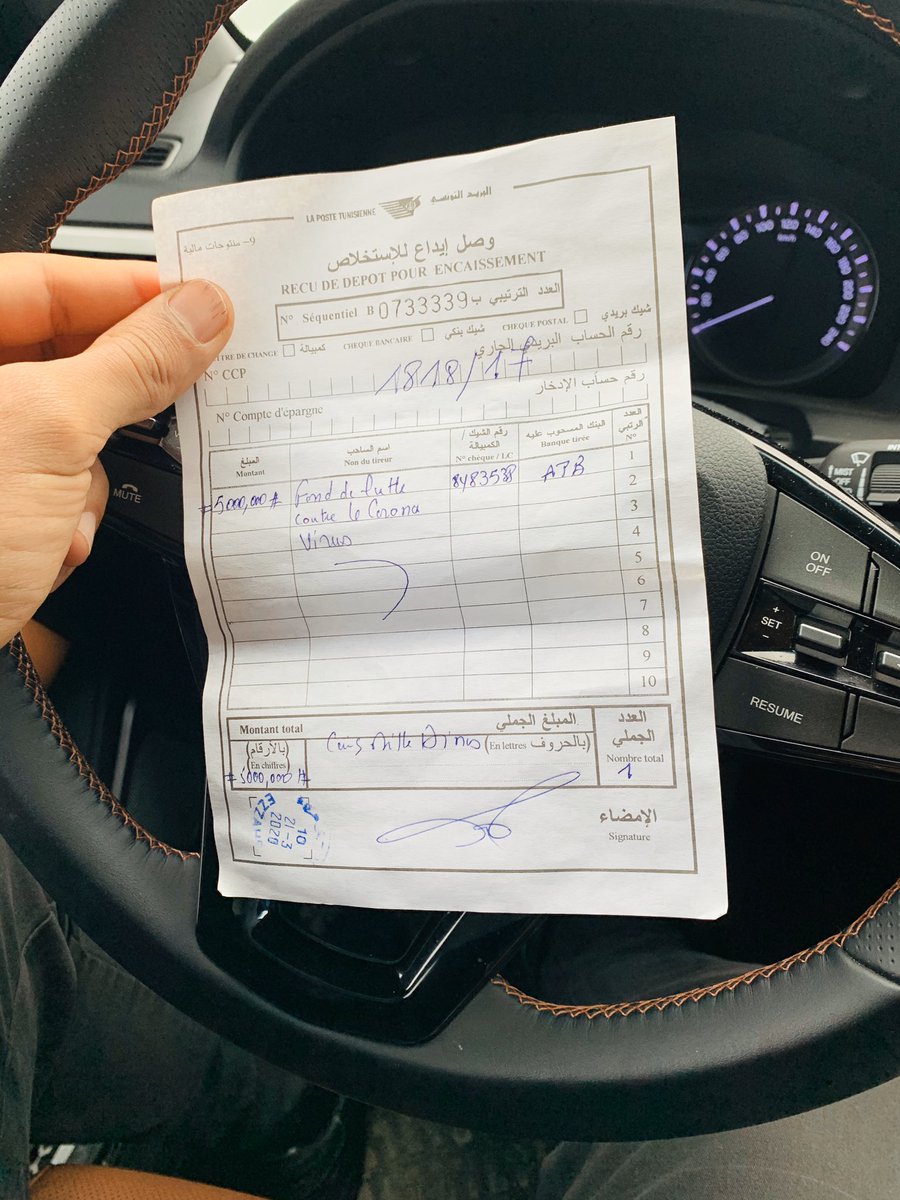 LA POSTE TUNISIENNE البريد التونسي
9- منتوجات مالية
وصل إيداع للإستخلاص
RECU DE DEPOT POUR ENCAISSEMENT
N° Séquentiel B 0733339 العدد الترتيبي ب
LETTRE DE CHANGE كمبيالة CHEQUE BANCAIRE شيك بنكي CHEQUE POSTAL شيك بريدي
N° CCP 1818/17 رقم الحساب البريدي الجاري
N° Compte d'épargne رقم حساب الإدخار
المبلغ اسم الساحب رقم الشيك / الكمبيالة البنك المسحوب عليه العدد الرتبي
Montant Non du tireur N° chèque / LC Banque tirée N°
1
#5000,000# Fond de lutte 8483538 ATB 2
contre le Corona 3
Virus 4
5
6
7
8
9
10
Montant total المبلغ الجملي العدد الجملي
(بالأرقام) Cinq Mille Dinars (En lettres بالحروف) Nombre total
(En chiffres) 1
#5000,000#
الإمضاء
Signature
EZZAH
21-3
2020
10
MUTE
km/h
20 40 60 80 100 120 140 160 180 200 220 240
INT
MIST
OFF
ON
OFF
+
SET
-
RESUME